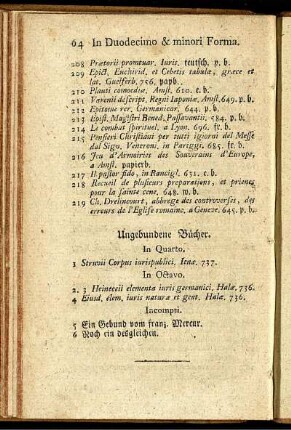 64 In Duodecimo & minori Forma.
208 Prætorii promtuar. Iuris, teutsch. p. b.
209 Epict. Enchirid, et Cebetis tabula, græce et
lat. Guelferb, 736. papb.
210 Plauti comœdiæ, Amst. 610. t. b.
211 Varenii descript. Regni Iaponiæ, Amst. 649. p. b.
212 Epitome rer. Germanicar. 644. p. b.
213 Epist. Magistri Bened. Passavantii. 584. p. b.
214 Le combat spirituel, a Lyon. 696. fr. b.
215 Pensieri Christiani per tutti igiorni del Messe
dal Sign. Veneroni, in Pariggi. 685. fr. b.
216 Jeu d'Armoiries des Souverains d'Europe,
a Amst. papierb.
217 Il pastor fido, in Rancigl. 631. t. b.
218 Recueil de plusieurs preparations, et prieres
pour la sainte cene, 648. w. b.
219 Ch. Drelincourt, abbrege des controverses, des
erreurs de l'Eglise romaine, a Geneve. 645. p. b.
Ungebundene Bücher.
In Quarto.
1 Struvii Corpus iurispublici, Ienæ, 737.
In Octavo.
2. 3 Heineccii elementa iuris germanici, Halæ, 736.
4 Eiusd, elem, iuris naturæ et gent. Halæ, 736.
Incompti.
5 Ein Gebund vom franz. Mercur.
6 Noch ein desgleichen.